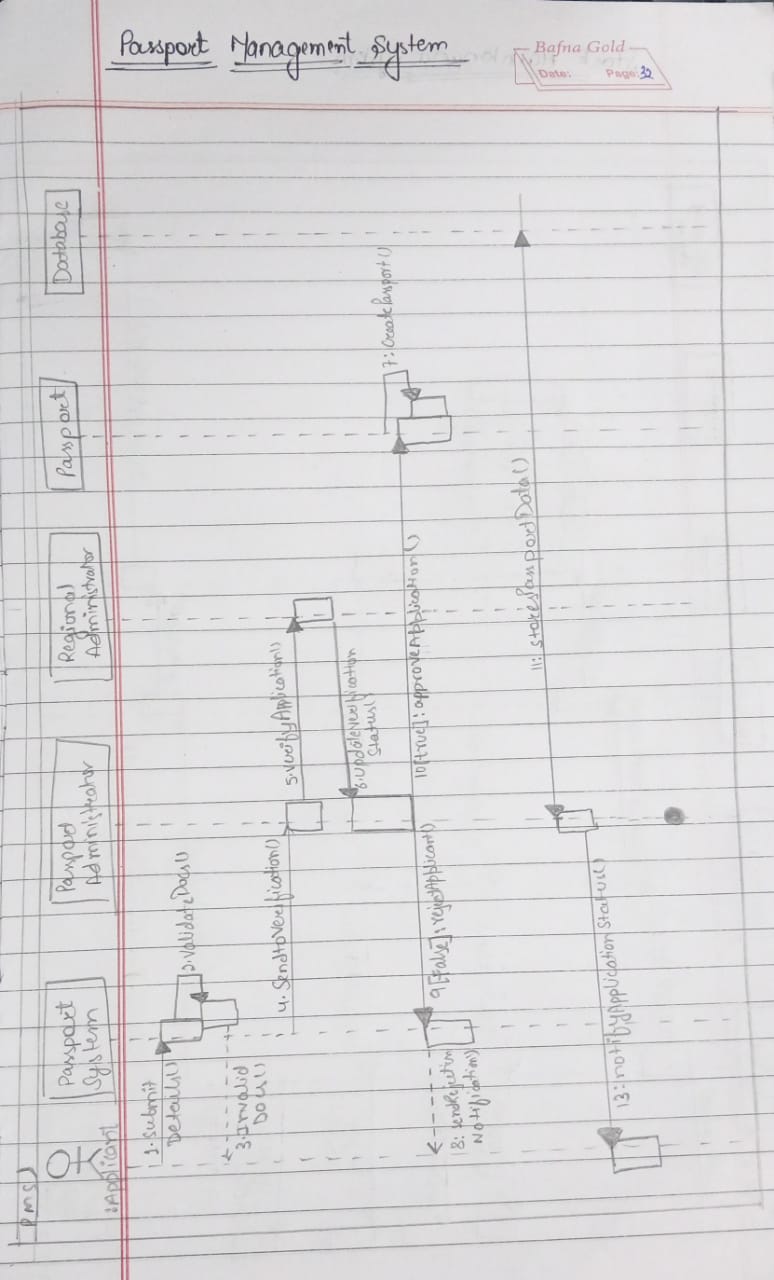 Passport Management System
Bafna Gold
Date: Page: 32
PMS
:Applicant
Passport
System
Passport
Administrator
Regional
Administrator
Passport
Database
1: Submit
Details()
2: ValidateDocs()
3: Invalid
Docs()
4. SendtoVerification()
5. VerifyApplication()
6: UpdateVerification
Status()
7: CreatePassport()
8: SendRejection
Notification()
9[false]: rejectApplicant()
10[true]: approveApplication()
11: storePassportData()
13: notifyApplicationStatus()